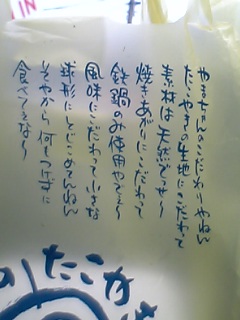 やまちゃんのこだわりやねん
たこやきの生地にこだわって
素材は天然でせ〜
焼きあがりにこだわて
鉄鍋のみ使用やでぇ〜
風味にこだわって小さな
球形にとどめてんねん
そやから、何もつけずに
食べてぇな〜
たこや
IN